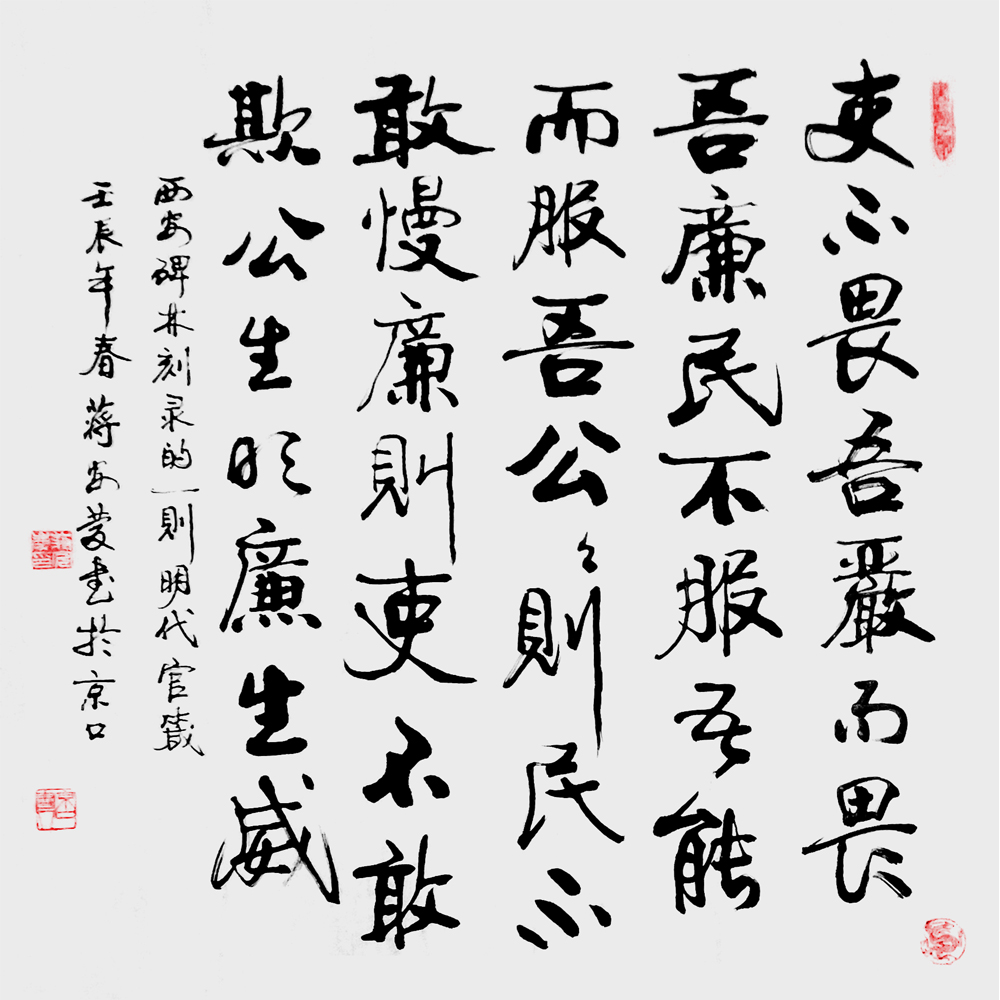 吏不畏吾嚴而畏
吾廉民不服吾能
而服吾公々則民不
敢慢廉則吏不敢
欺公生明廉生威
西安碑林刻录的一則明代官箴
壬辰年春蒋安书於京口